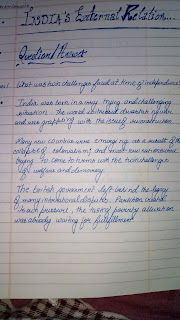 INDIA'S External Relation...
Question / Answers
What was twin challenges faced at time of independence
India was born in a very trying and challenging
situation. The world witnessed devastating
and was grappling with the issue of reconstruction
Many new countries were emerging as a result of the
collapse of colonialism, and most new nations were
trying to come to terms with the twin challenges
of welfare and democracy.
The British government left behind the legacy
of many international disputes. Partition created
its own pressure, the task of poverty alleviation
was already waiting for fulfillment.